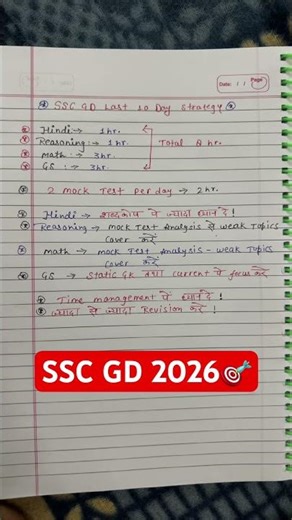 Date: / / Page
SSC GD Last 10 Day Strategy
Hindi → 1 hr.
Reasoning → 1 hr.
Math → 3 hr.
GS :→ 3 hr.
Total 8 hr.
2 mock Test Per day → 2 hr.
Hindi → शब्दकोष पे ज्यादा ध्यान दे !
Reasoning → mock Test Analysis से weak Topics
Cover करें
math → mock Test Analysis - weak Topics
Cover करें
GS → Static GK तथा current पे focus करें
Time management पे ध्यान दे !
ज्यादा से ज्यादा Revision करें !
SSC GD 2026🎯